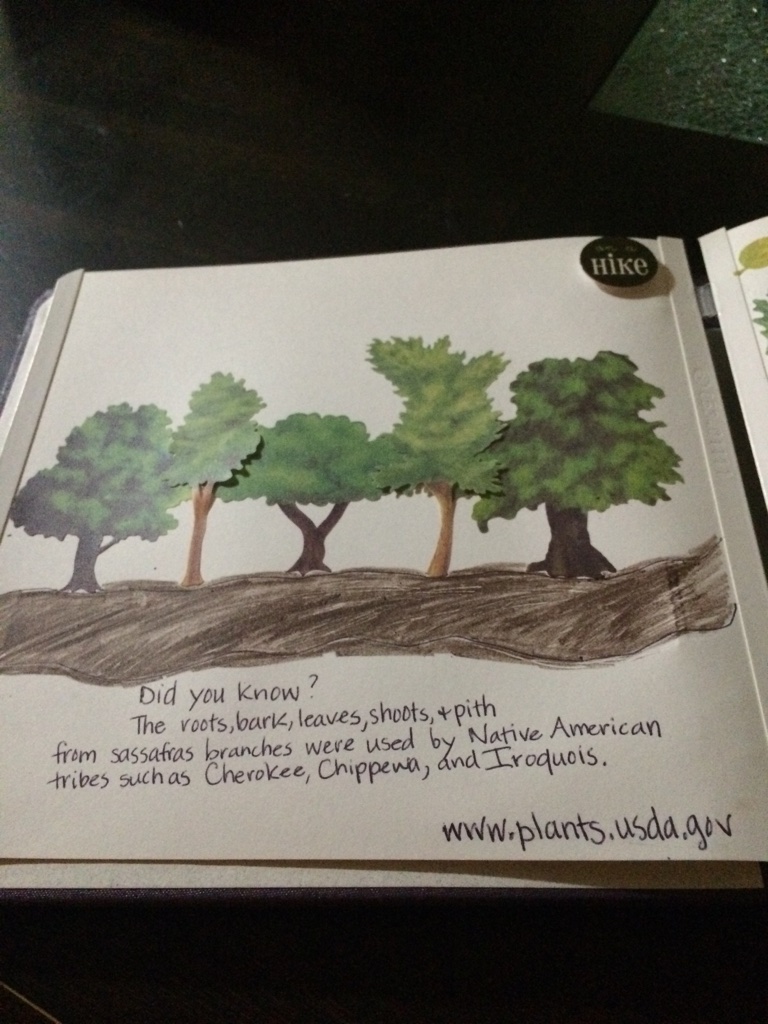 HiKe
Did you know?
The roots, bark, leaves, shoots, + pith
from sassafras branches were used by Native American
tribes such as Cherokee, Chippewa, and Iroquois.
www.plants.usda.gov